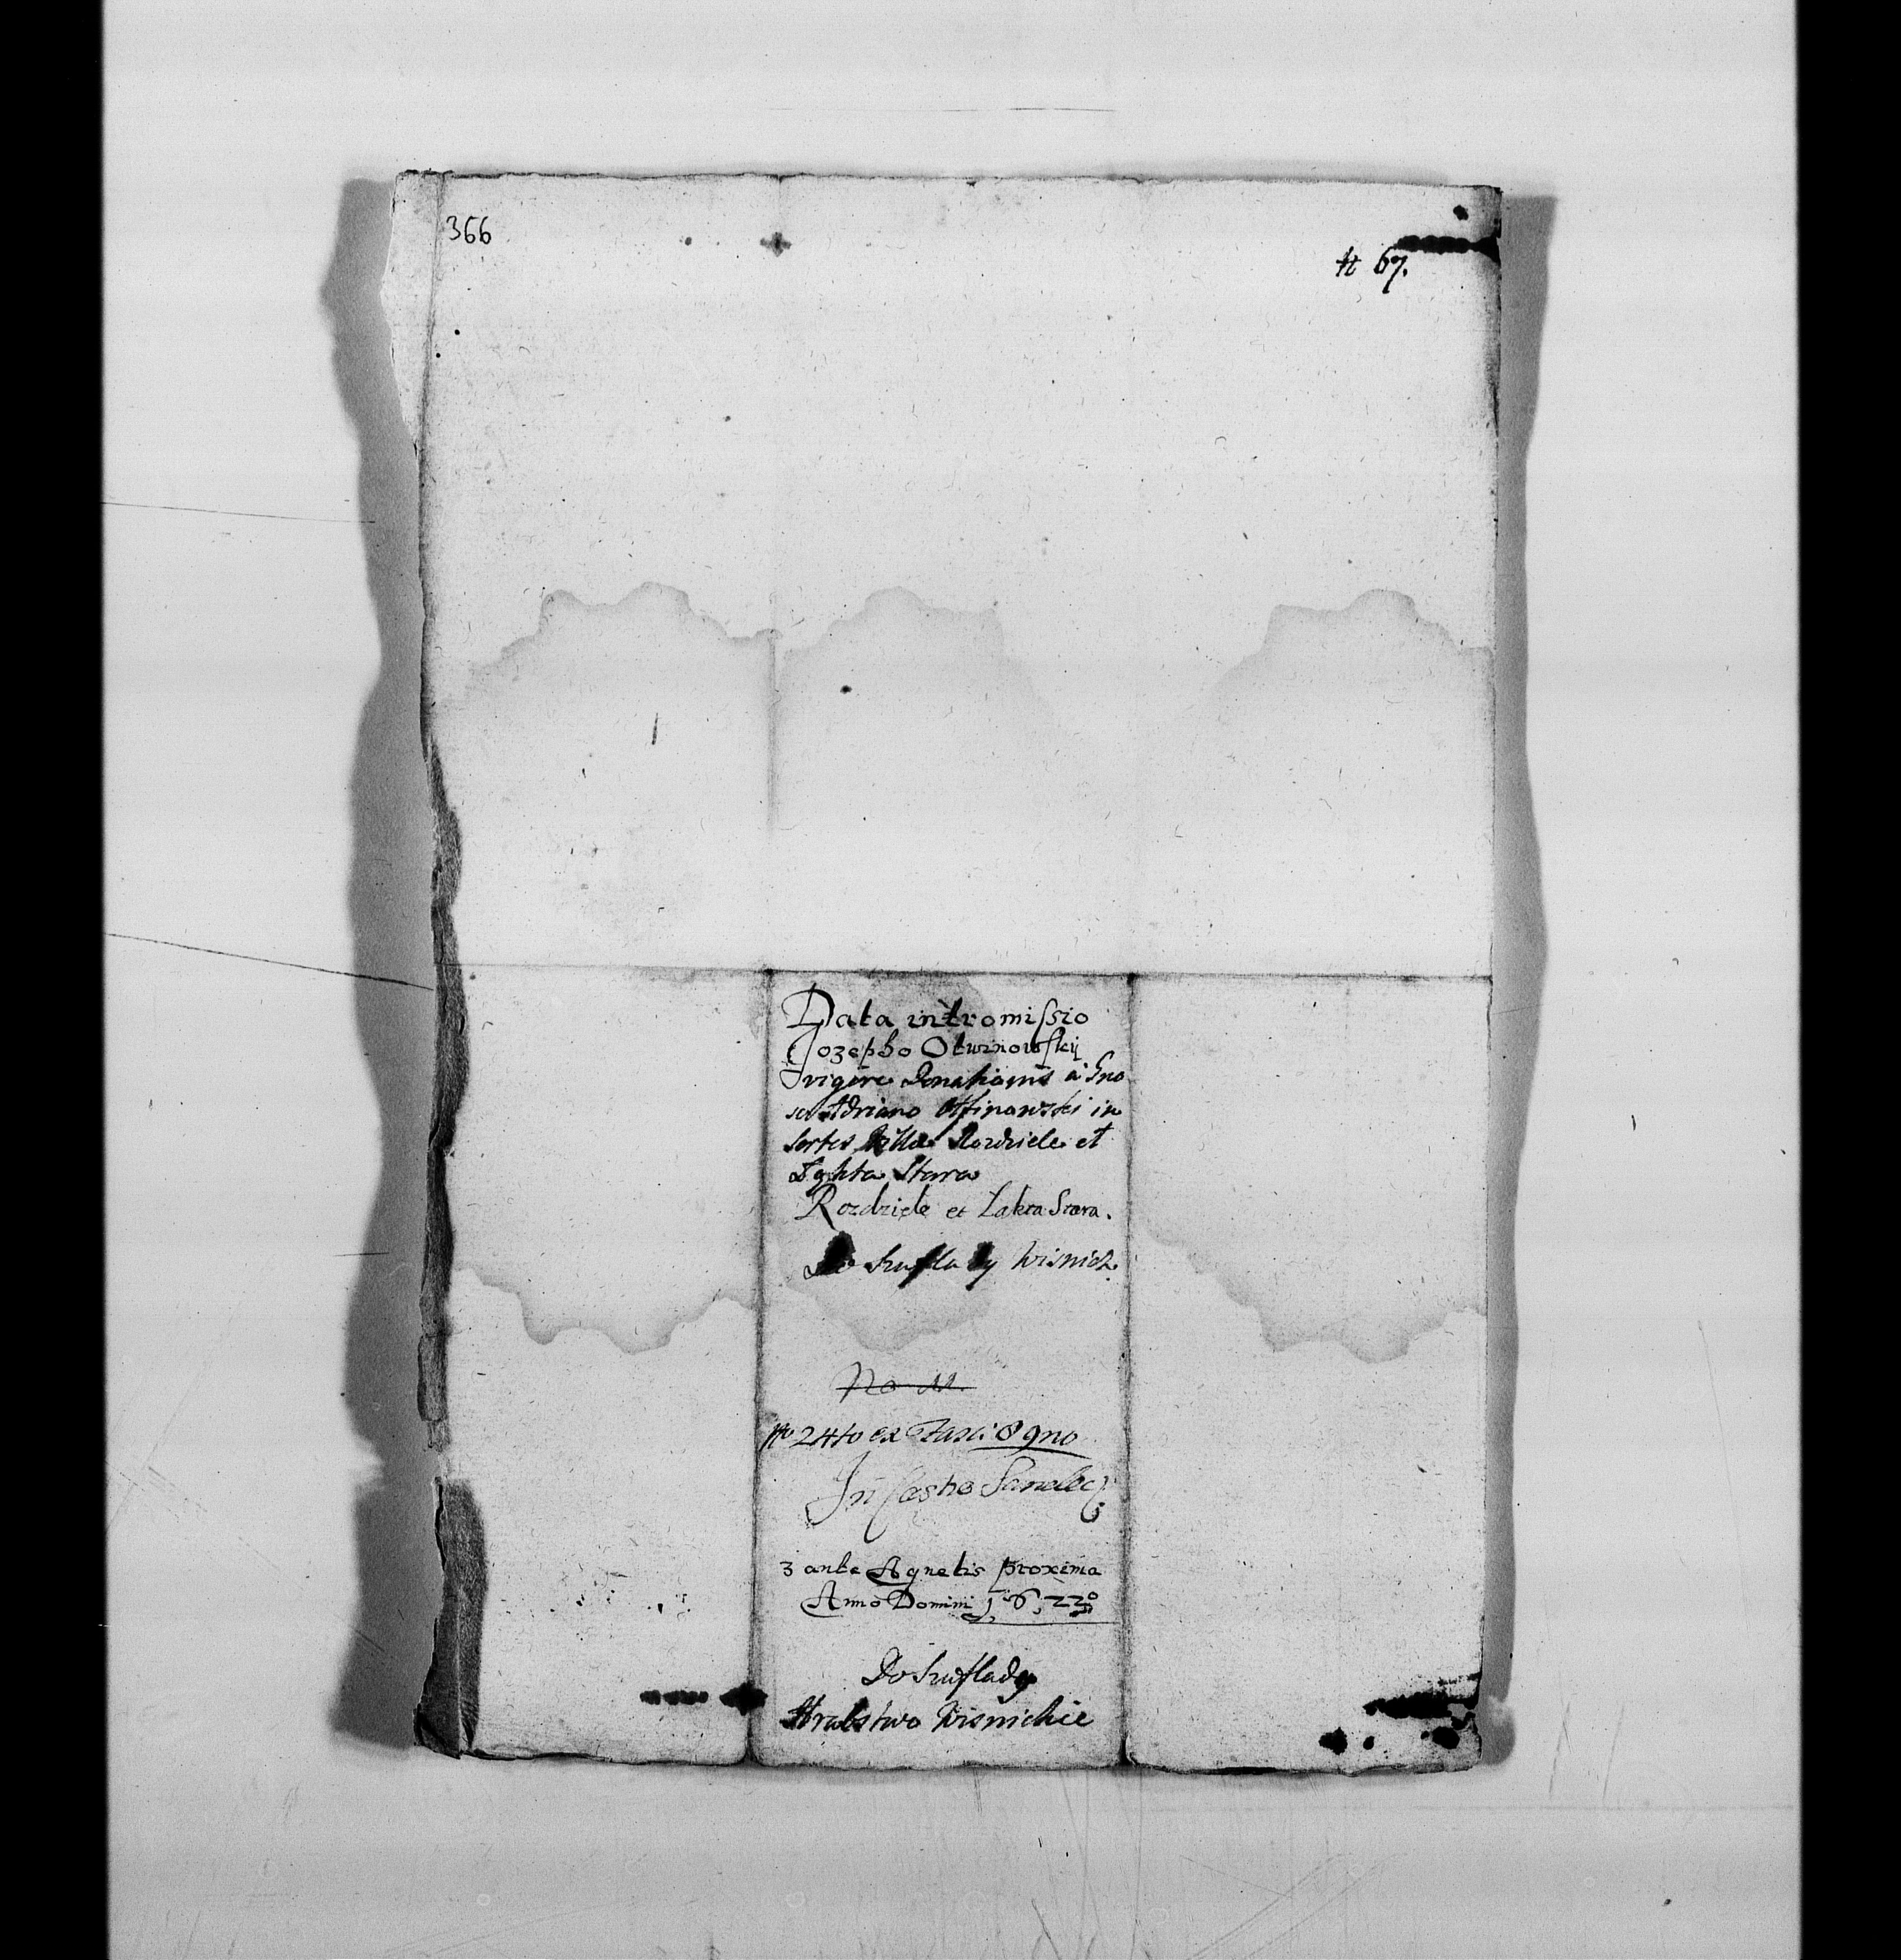 366
# 67.
Data intromissio
Jozepho Otwinowskij
vigore Donationis a Gno
Adriano Otfinowski in
sortes Villae Rozdziele et
Łąkta Stara
Rozdziele et Łakta Stara.
Do szuflady Wisnick.
No 11.
No 24to ex Fasci: 8 gno
In Castro Sandec:
3 ante Agnetis proxima
Anno Domini 1622do
Do szuflady
Hrabstwo Wisnickie